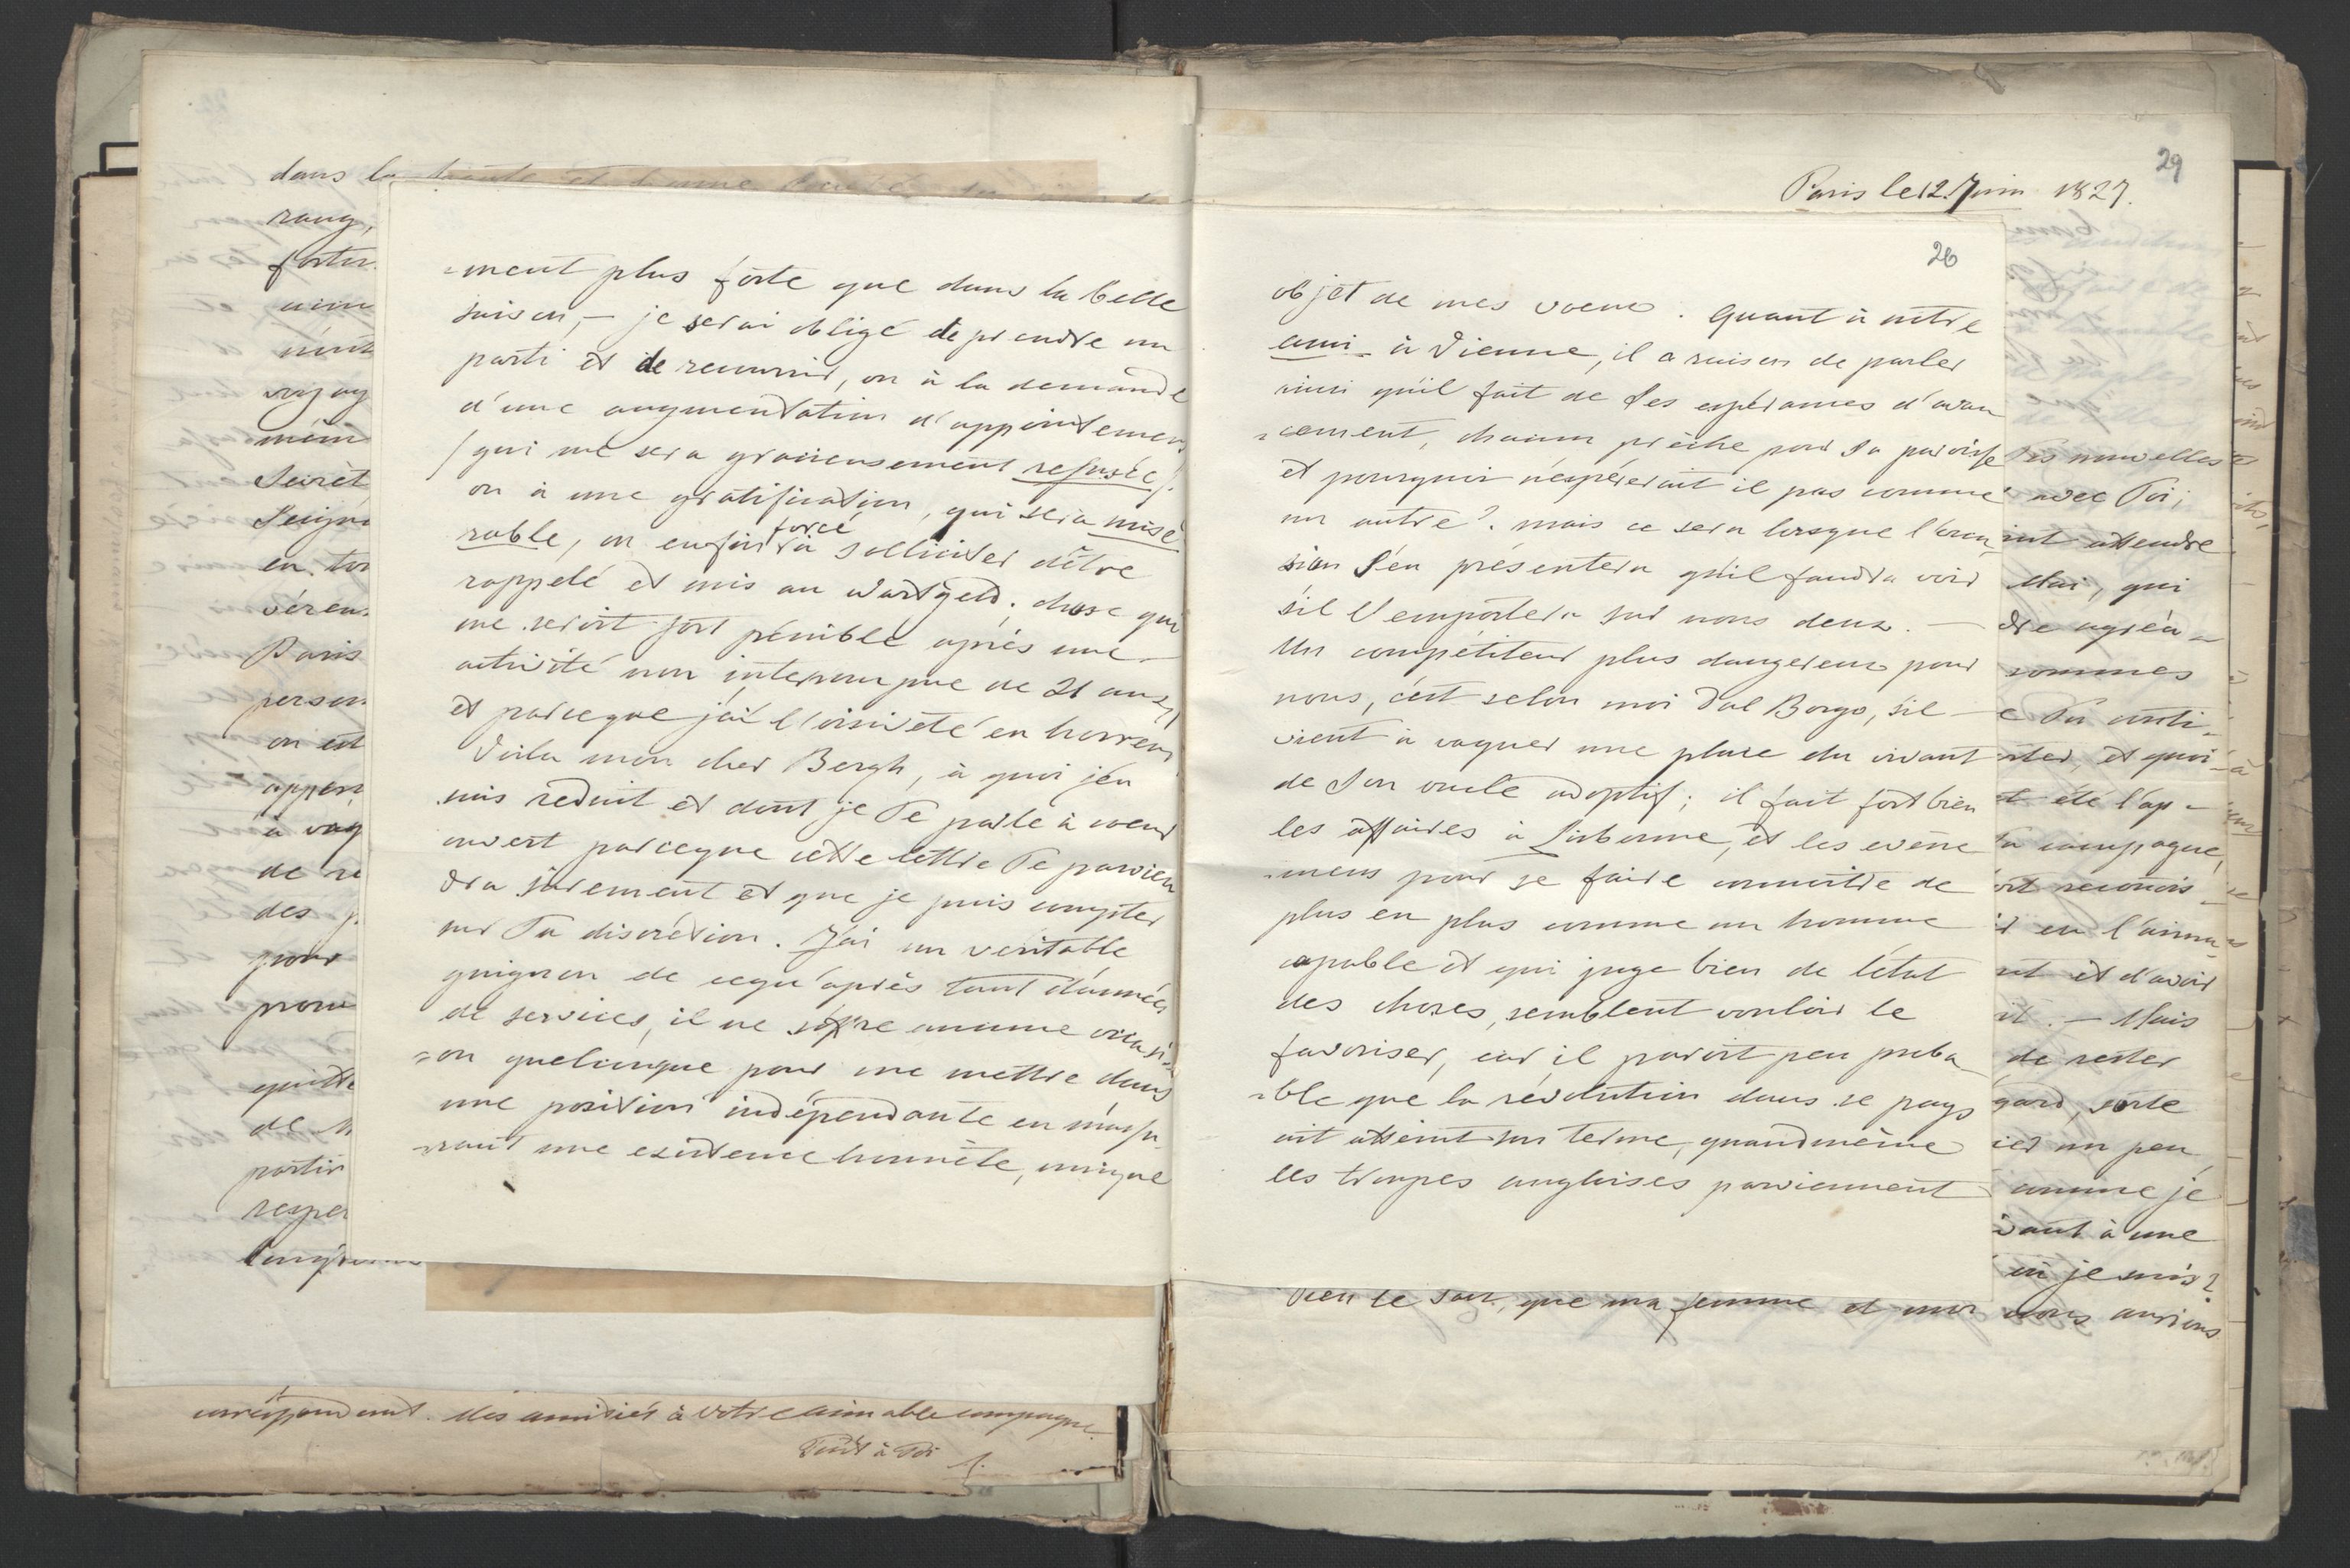 dans la
rang,
même
Secrét
en tou
Paris
person
on est
à vaq
de re
des p
pour
quitte
de M
partir
respec
-ment plus forte que dans la belle
saison, — je serai obligé de prendre un
parti et de recourrir, ou à la demande
d'une augmentation d'appointemens
(qui me sera gracieusement refusée).
ou à une gratification, qui sera misé
rable, ou enfin forcé à solliciter d'être
rappelé et mis au wartgeld. chose qui
me seroit fort pénible après une
activité non interrompue de 21 ans,
et parceque j'ai l'oisiveté en horreur,
Voila mon cher Bergh, à quoi j'en
suis réduit et dont je Te parle à coeur
ouvert parceque cette lettre Te parvien
dra surement et que je puis compter
sur Ta discrétion. J'ai un veritable
guignon de cequ'après tant d'années
de services, il ne s'offre aucune occasi
-on quelconque pour me mettre dans
une position indépendante en m'assu
-rant une existence honnête, unique
correspondant. Mes amitiés à votre aimable compagne.
Tout à Toi
29
Paris le 12. Juin 1827.
26
objet de mes voeux. Quant à nôtre
ami à Vienne, il a raison de parler
ainsi qu'il fait de Ses espérances d'avan
-cement, chacun prêche pour Sa paroisse
et pourquoi n'espéreroit il pas comme
un autre?. mais ce sera lorsque l'occa
sion S'en présentera qu'il faudra voir
s'il l'emportera sur nous deux. —
Un compétiteur plus dangereux pour
nous, c'est selon moi Dal Borgo, s'il
vient à vaquer une place du vivant
de Son oncle adoptif; il fait fort bien
les affaires à Lisbonne, et les evène
-mens pour se faire connoitre de
plus en plus comme un homme
capable et qui juge bien de l'état
des choses, semblent vouloir le
favoriser, car il paroit peu proba
-ble que la révolution dans ce pays
ait atteint son terme, quandmême
les troupes angloises parviennent
Tes nouvelles
avec Toi;
attendre
Mai, qui
dre agréa-
sommes
et quoi-
été l'ap-
compagne,
reconnois
en l'aima
et d'avoir
— Mais
de rester
gard, sorte
un peu
comme je
vant à une
où je suis?
Dieu le sait, que ma femme et moi nous aurions